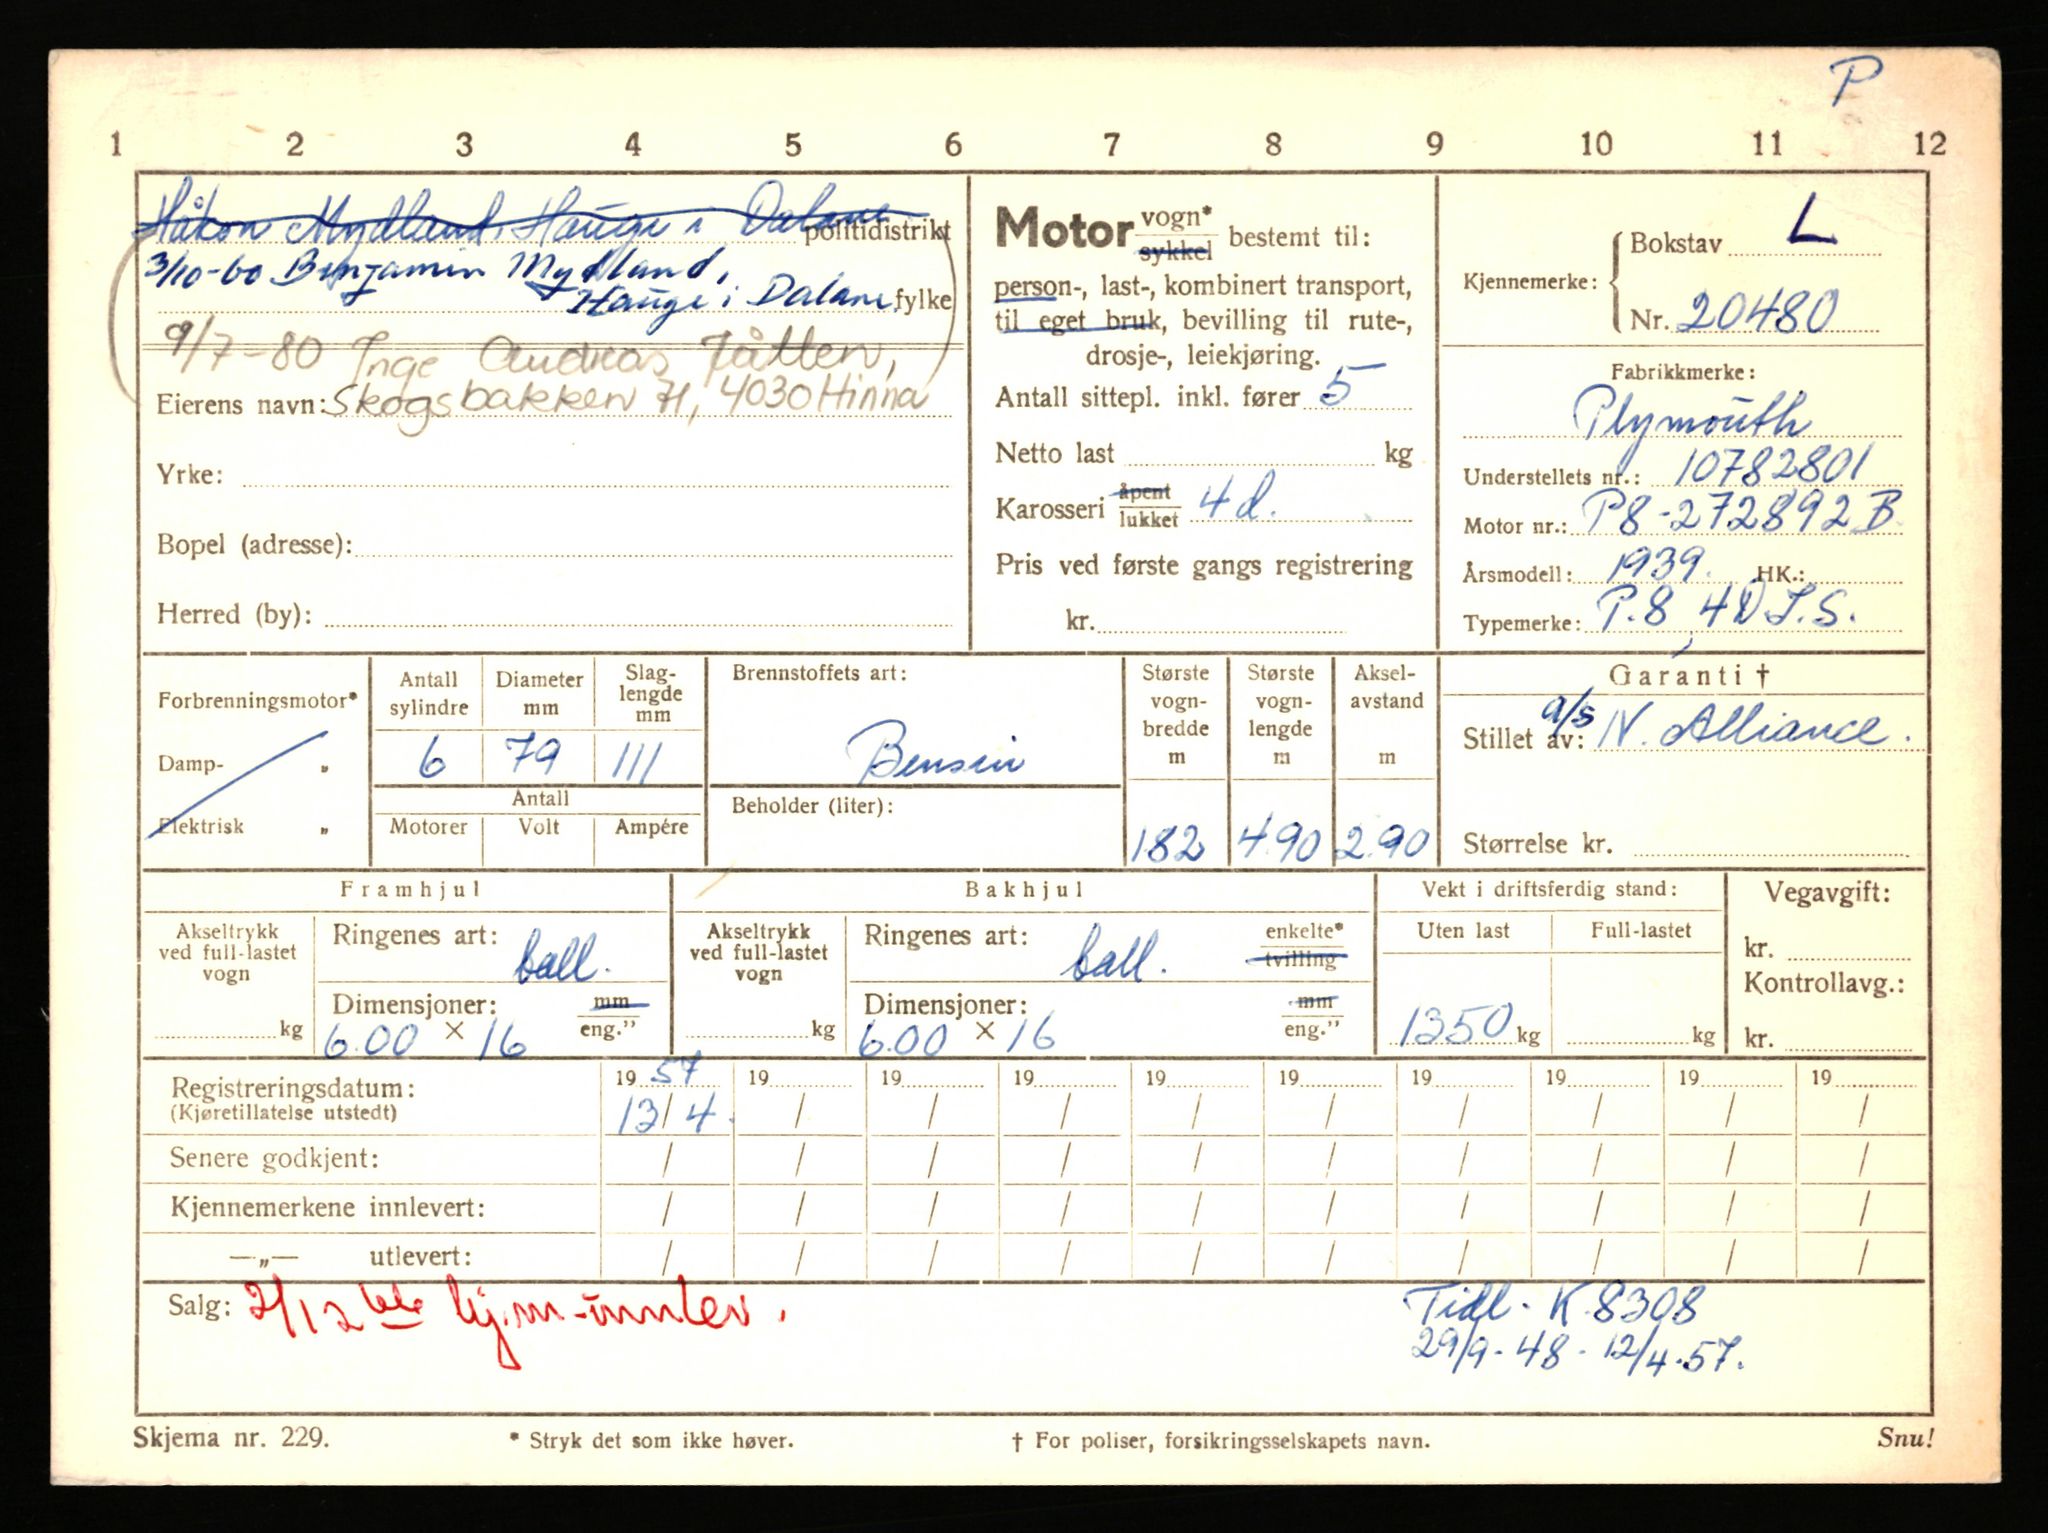 P
1 2 3 4 5 6 7 8 9 10 11 12
Håkon Mydland, Hauge i Dalane politidistrikt
3/10-60 Benjamin Mydland,
Hauge i Dalane fylke
9/7-80 Inge Andreas Jåtten,
Eierens navn: Skogsbakken 71, 4030 Hinna
Yrke:
Bopel (adresse):
Herred (by):
Motor vogn* sykkel bestemt til:
person-, last-, kombinert transport,
til eget bruk, bevilling til rute-,
drosje-, leiekjøring.
Antall sittepl. inkl. fører 5
Netto last kg
Karosseri åpent lukket 4 d.
Pris ved første gangs registrering
kr.
Kjennemerke: Bokstav L
Nr. 20480
Fabrikkmerke:
Plymouth
Understellets nr.: 10782801
Motor nr.: P8-272892 B
Årsmodell: 1939. HK.:
Typemerke: P.8, 4D T.S.
Forbrenningsmotor*
Damp- „
Elektrisk „
Antall sylindre 6
Diameter mm 79
Slaglengde mm 111
Antall
Motorer Volt Ampére
Brennstoffets art:
Bensin
Beholder (liter):
Største vognbredde m 182
Største vognlengde m 4.90
Akselavstand m 2.90
Garanti †
Stillet av: a/s N. Alliance.
Størrelse kr.
Framhjul
Akseltrykk ved full-lastet vogn kg
Ringenes art: ball.
Dimensjoner: mm
6.00 × 16 eng.”
Bakhjul
Akseltrykk ved full-lastet vogn kg
Ringenes art: ball. enkelte* tvilling
Dimensjoner: mm
6.00 × 16 eng.”
Vekt i driftsferdig stand:
Uten last Full-lastet
1350 kg kg
Vegavgift:
kr.
Kontrollavg.:
kr.
Registreringsdatum: 19 57 19 19 19 19 19 19 19 19 19
(Kjøretillatelse utstedt) 13/4. / / / / / / / / /
Senere godkjent: / / / / / / / / / /
Kjennemerkene innlevert: / / / / / / / / / /
—„— utlevert: / / / / / / / / / /
Salg: 2/12 kj.m-innlev.
Tidl. K.8308
29/9-48 - 12/4-57.
Skjema nr. 229. * Stryk det som ikke høver. † For poliser, forsikringsselskapets navn. Snu!